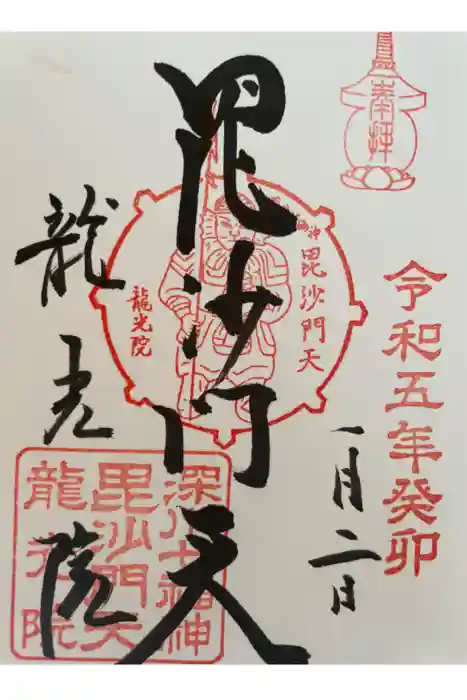 奉拝
令和五年癸卯
一月二日
毘沙門天
毘沙門天
龍光院
龍光院
深川七福神
毘沙門天
龍光院